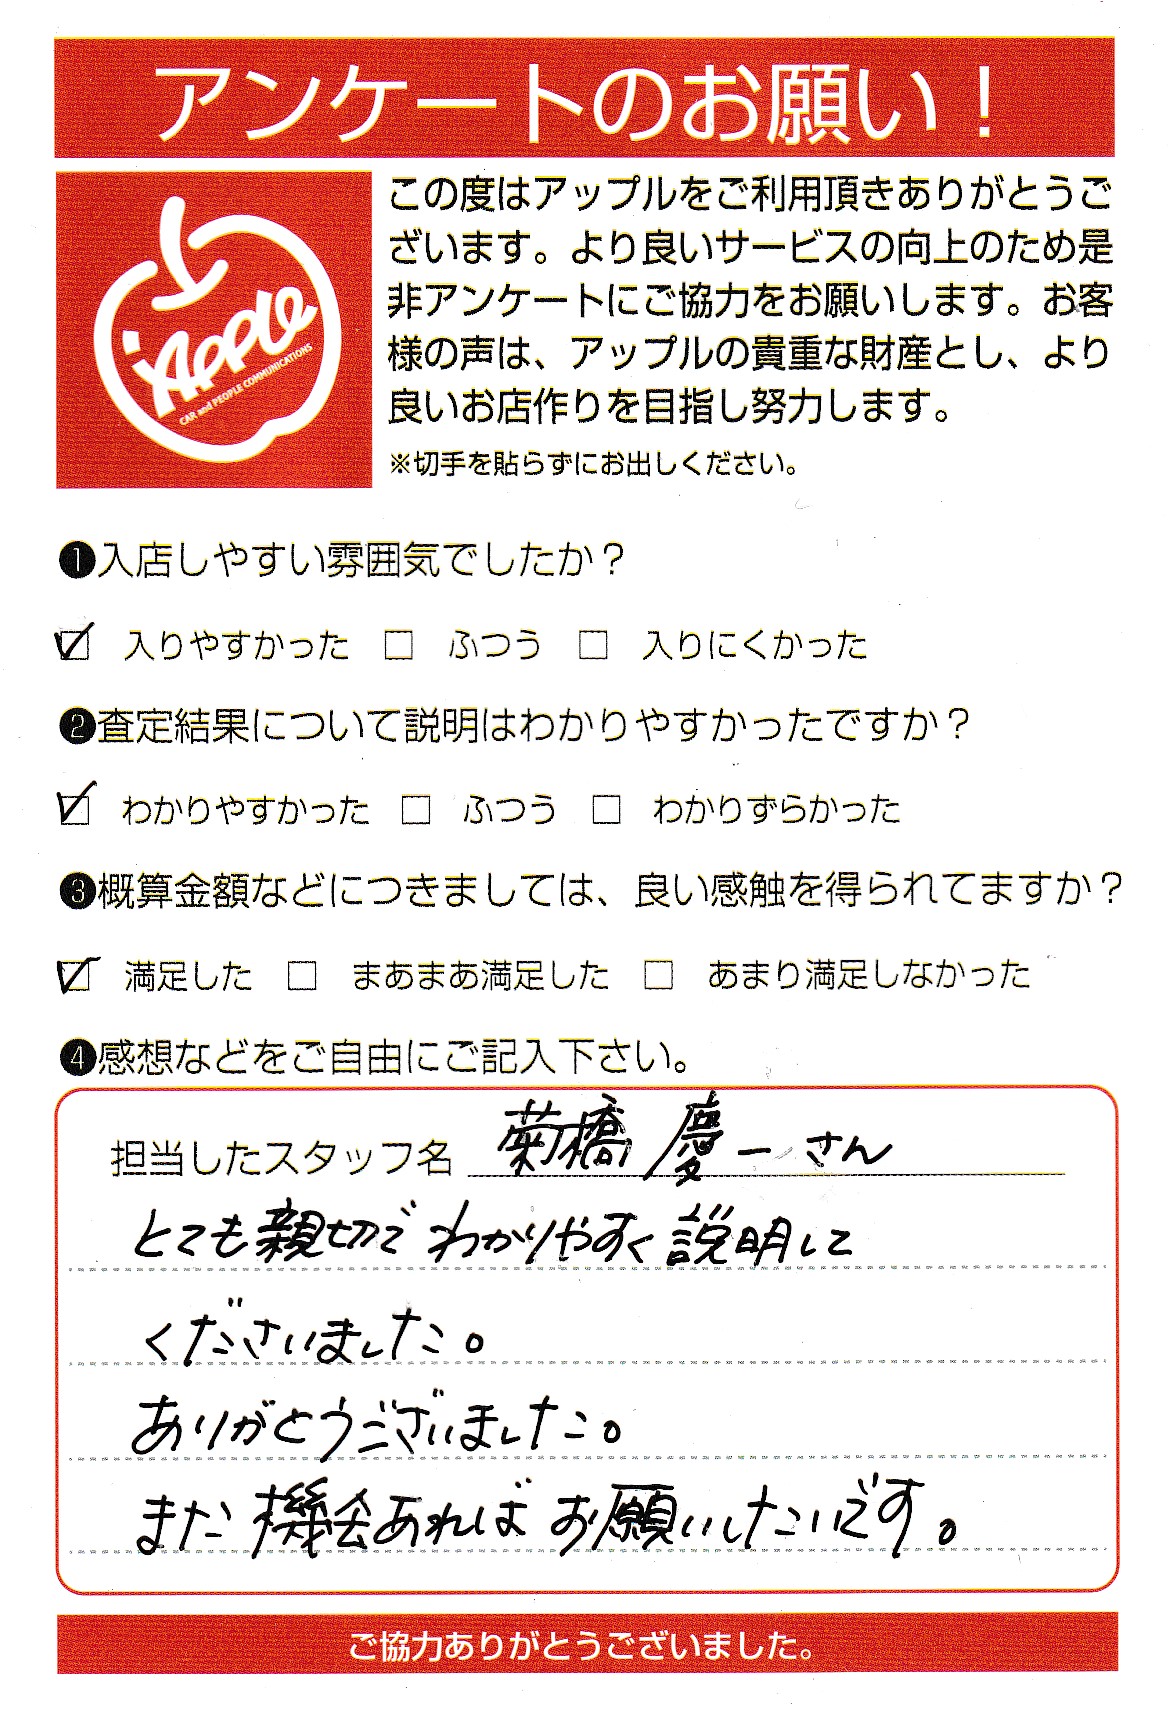 アンケートのお願い！
Apple
CAR and PEOPLE COMMUNICATIONS
この度はアップルをご利用頂きありがとうご
ざいます。より良いサービスの向上のため是
非アンケートにご協力をお願いします。お客
様の声は、アップルの貴重な財産とし、より
良いお店作りを目指し努力します。
※切手を貼らずにお出しください。
❶入店しやすい雰囲気でしたか？
☑ 入りやすかった □ ふつう □ 入りにくかった
❷査定結果について説明はわかりやすかったですか？
☑ わかりやすかった □ ふつう □ わかりずらかった
❸概算金額などにつきましては、良い感触を得られてますか？
☑ 満足した □ まあまあ満足した □ あまり満足しなかった
❹感想などをご自由にご記入下さい。
担当したスタッフ名 菊橋 慶一さん
とても親切でわかりやすく説明して
くださいました。
ありがとうございました。
また機会あればお願いしたいです。
ご協力ありがとうございました。